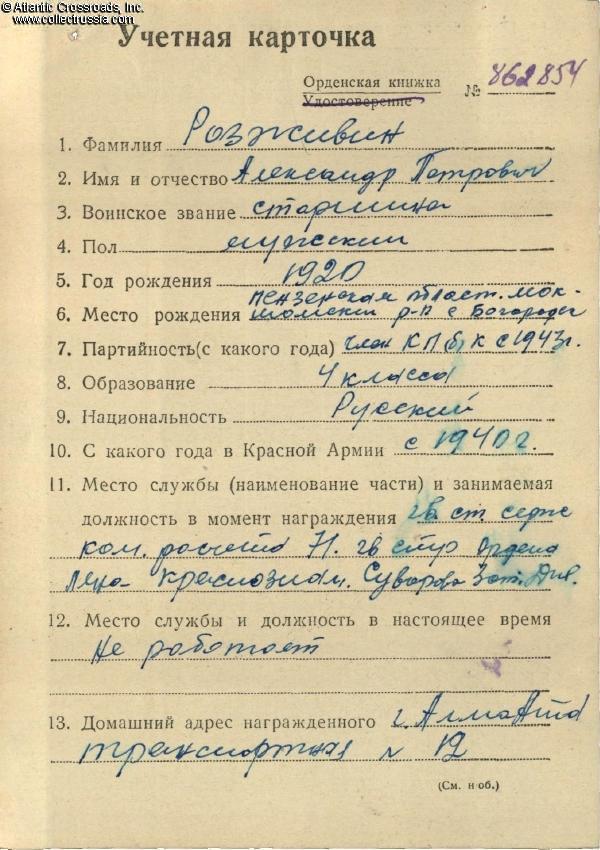 © Atlantic Crossroads, Inc.
www.collectrussia.com
Учетная карточка
Орденская книжка
Удостоверение № 862854
1. Фамилия Разживин
2. Имя и отчество Александр Петрович
3. Воинское звание старшина
4. Пол мужский
5. Год рождения 1920
Пензенская област. Мок-
6. Место рождения шанский р-н с Богородск
7. Партийность(с какого года) член КП(б)К с 1943г.
8. Образование 4 класса
9. Национальность Русский
10. С какого года в Красной Армии с 1940 г.
11. Место службы (наименование части) и занимаемая
должность в момент награждения гв. ст. серж
ком. расчета 71. гв стр Ордена
Лена- Краснознам. Суворова Зат. Див.
12. Место службы и должность в настоящее время
Не работает
13. Домашний адрес награжденного г. Алма Ата
транспортная N 12
(См. н об.)